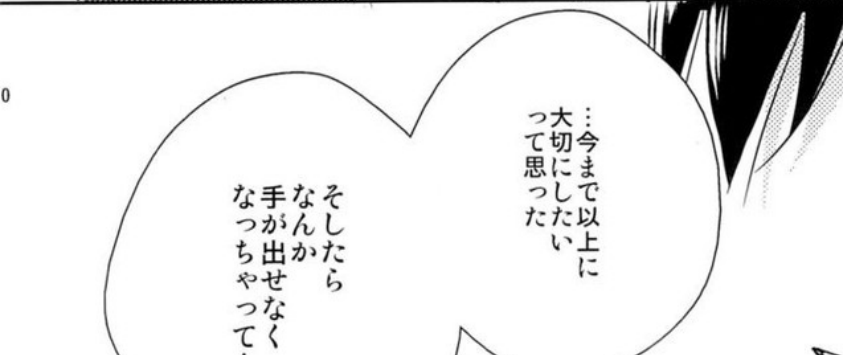 …今まで以上に
大切にしたい
って思った
そしたら
なんか
手が出せなく
なっちゃって
0